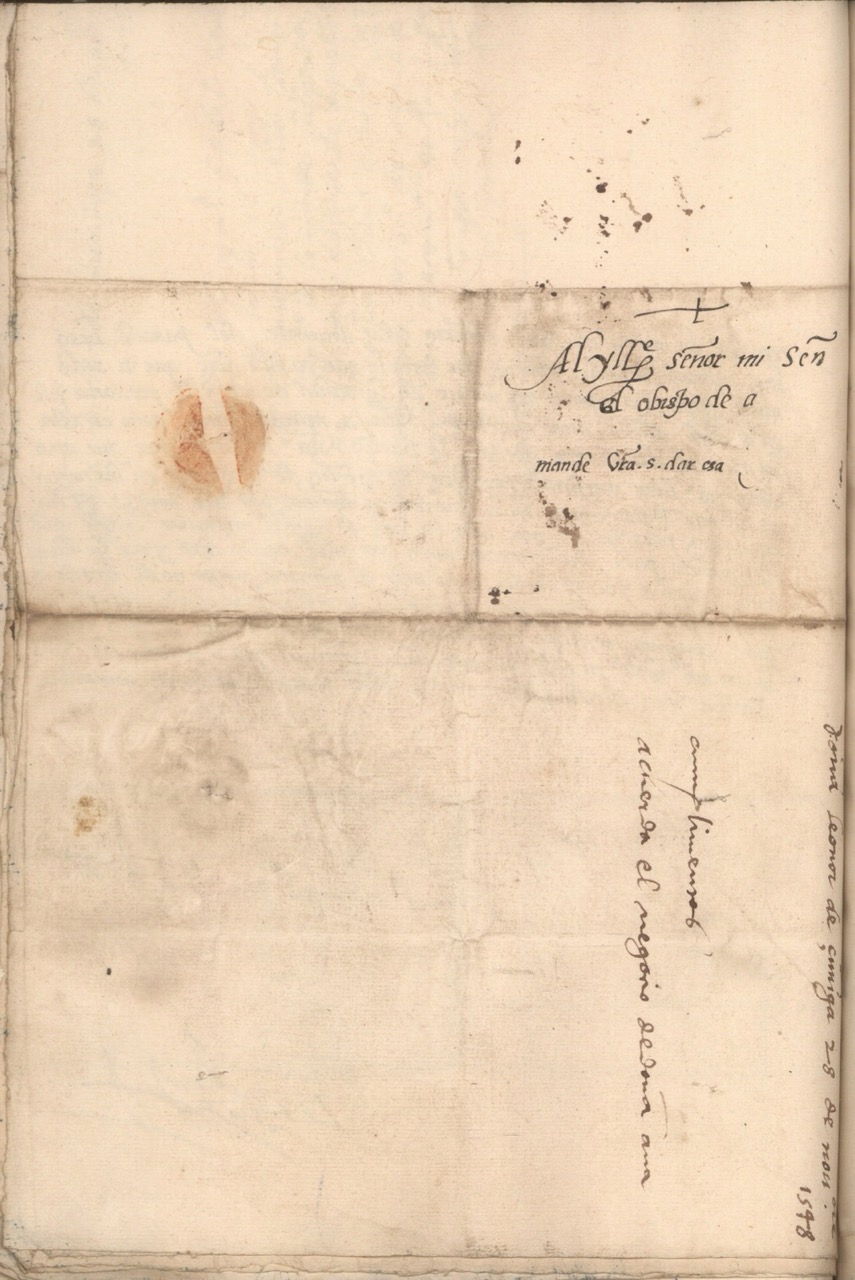 Al yllᵉ señor mi Señ
el obispo de a
mande Vra. s. dar esa
doña leonor de çuniga 28 de nou
1548
cumplimientos
acuerda el negoçio de doña ana